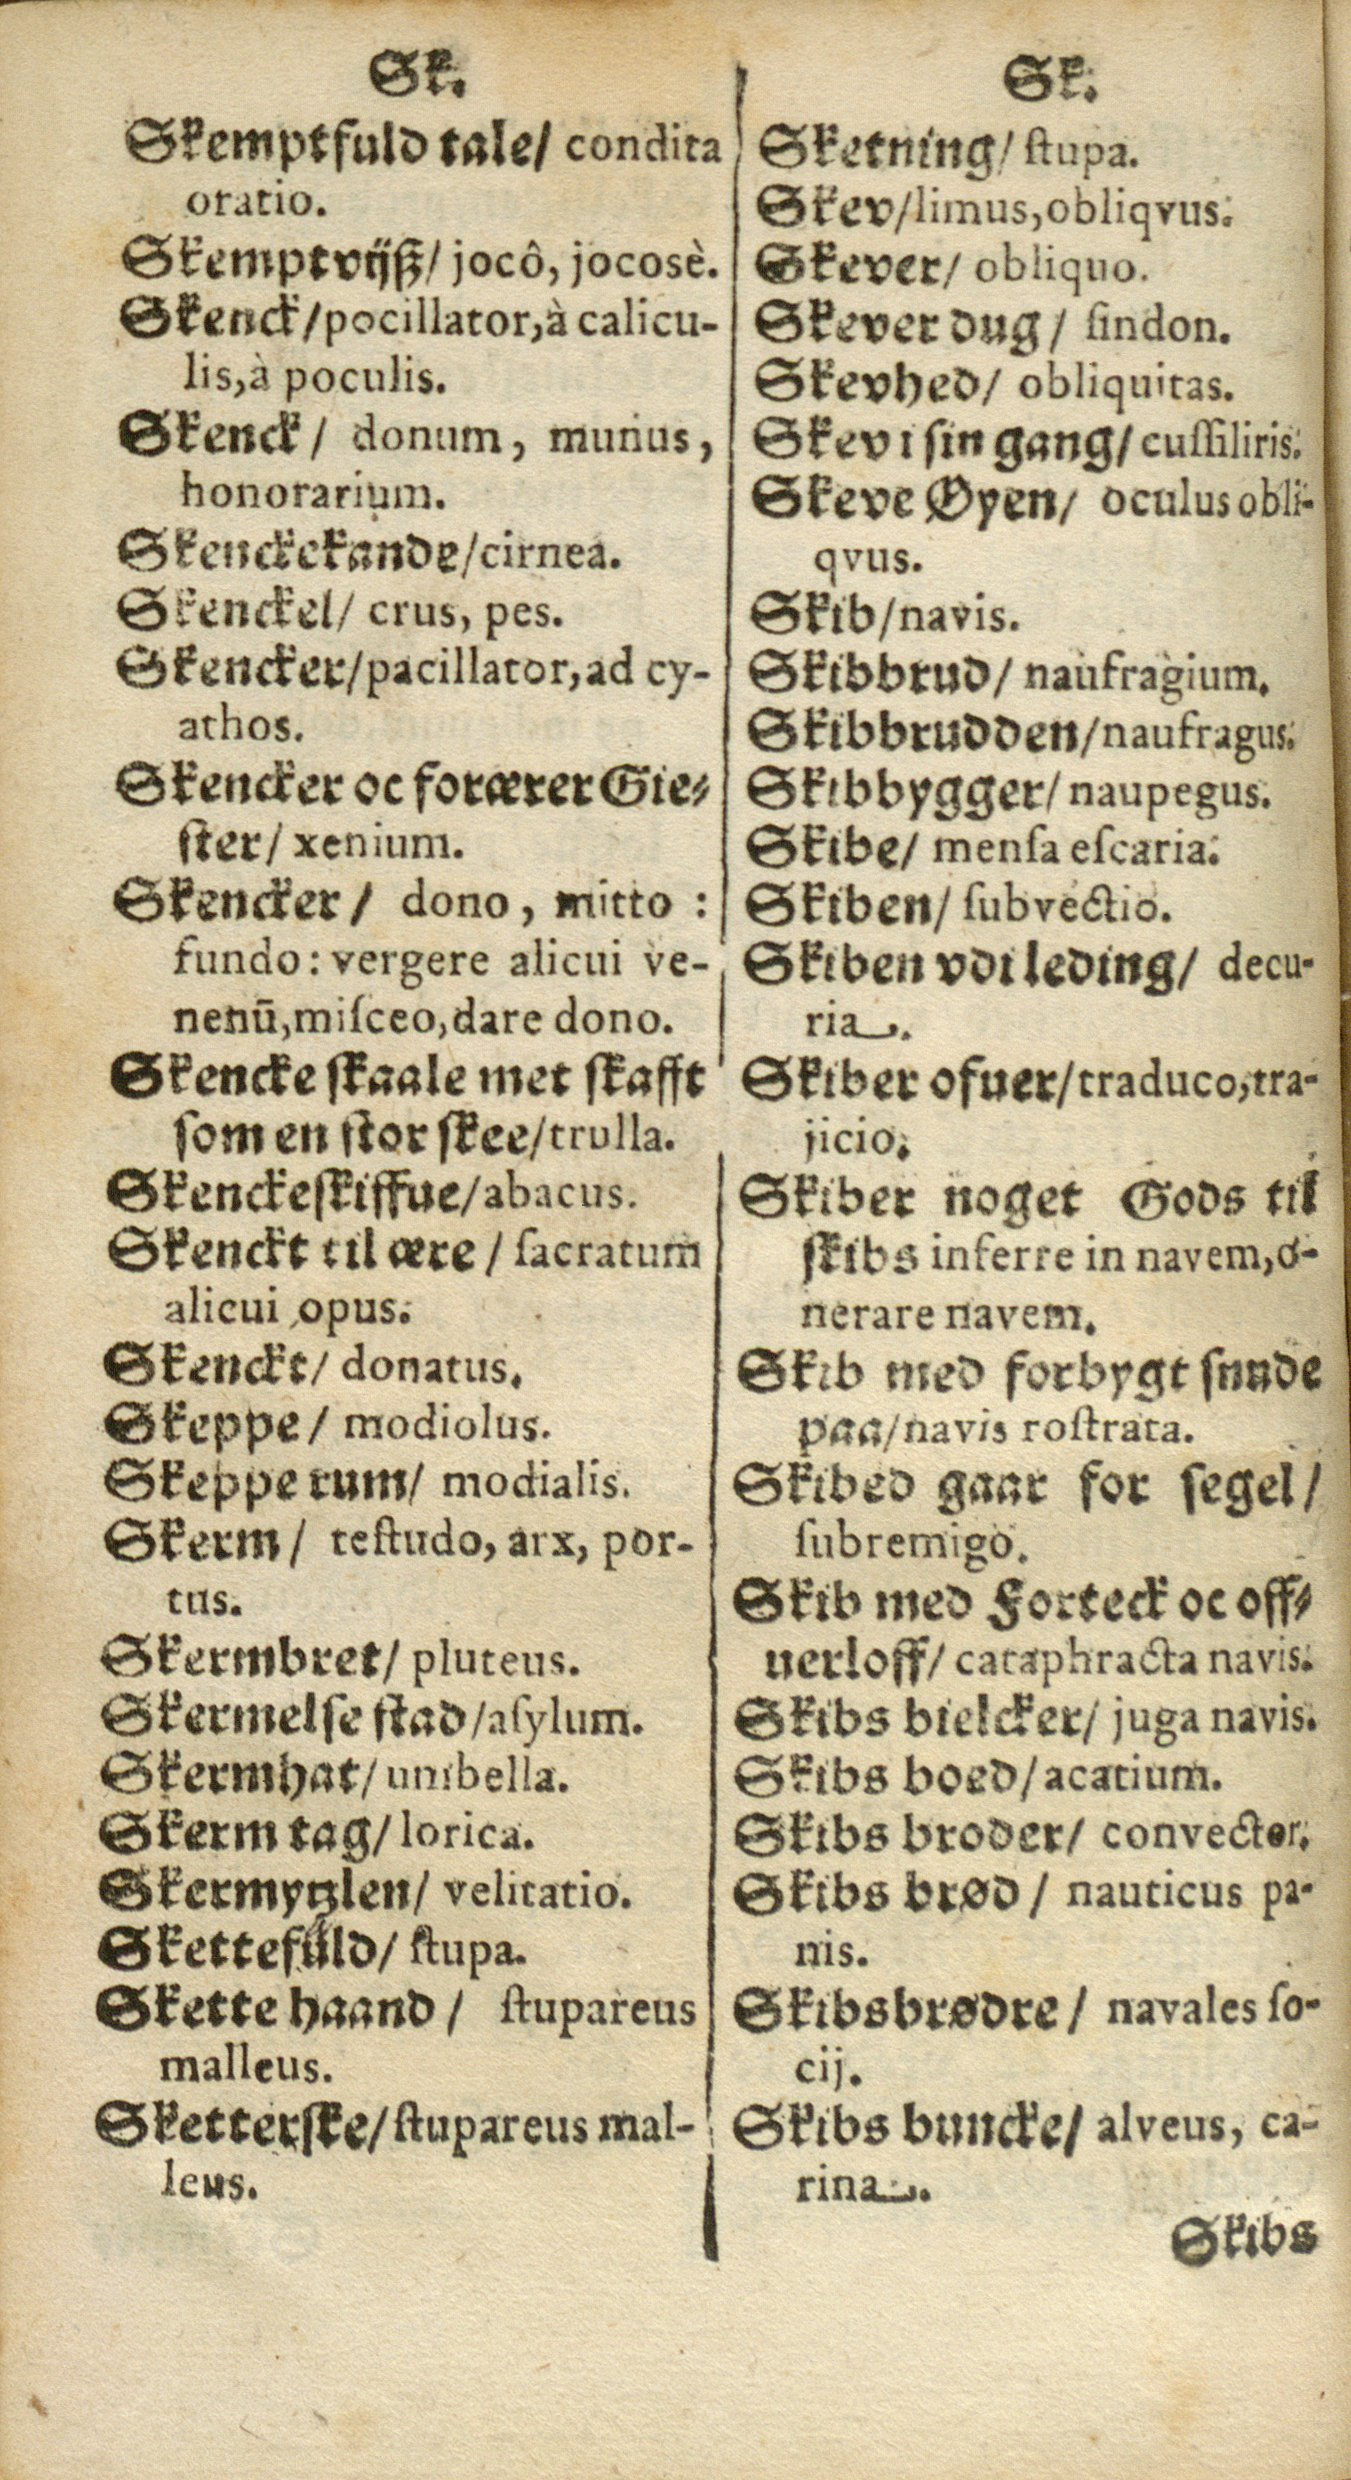 Sk.
Skemptfuld tale/ condita
oratio.
Skemptvijß/ jocô, jocosè.
Skenck/pocillator,à calicu-
lis,à poculis.
Skenck/ donum, munus,
honorarium.
Skenckekande/cirnea.
Skenckel/ crus, pes.
Skencker/pacillator,ad cy-
athos.
Skencker oc forærer Gie-
ster/ xenium.
Skencker/ dono, mitto :
fundo: vergere alicui ve-
nenū,miſceo,dare dono.
Skencke ſkaale met ſkafft
ſom en ſtor ſkee/trulla.
Skenckeſkiffue/abacus.
Skenckt til ære/ ſacratum
alicui opus.
Skenckt/ donatus.
Skeppe/ modiolus.
Skeppe rum/ modialis.
Skerm/ teſtudo, arx, por-
tus.
Skermbret/ pluteus.
Skermelse ſtad/aſylum.
Skermhat/umbella.
Skerm tag/lorica.
Skermytzlen/ velitatio.
Skettefuld/ ſtupa.
Skette haand/ ſtupareus
malleus.
Sketterſke/ſtupareus mal-
leus.
Sk.
Sketning/ ſtupa.
Skev/limus,obliqvus.
Skever/ obliquo.
Skever dug/ ſindon.
Skevhed/ obliquitas.
Skev i ſin gang/ cuſſiliris.
Skeve Øyen/ oculus obli-
qvus.
Skib/navis.
Skibbrud/ naufragium.
Skibbrudden/naufragus.
Skibbygger/ naupegus.
Skibe/ menſa eſcaria.
Skiben/ ſubvectio.
Skiben vdi leding/ decu-
ria.
Skiber ofuer/traduco,tra-
jicio.
Skiber noget Gods til
ſkibs inferre in navem,o-
nerare navem.
Skib med forbygt ſnude
paa/navis roſtrata.
Skibed gaar for ſegel/
ſubremigo.
Skib med Forteck oc off-
uerloff/ cataphracta navis.
Skibs bielcker/ juga navis.
Skibs boed/acatium.
Skibs broder/ convector.
Skibs brød/ nauticus pa-
nis.
Skibsbrødre/ navales ſo-
cij.
Skibs buncke/ alveus, ca-
rina.
Skibs